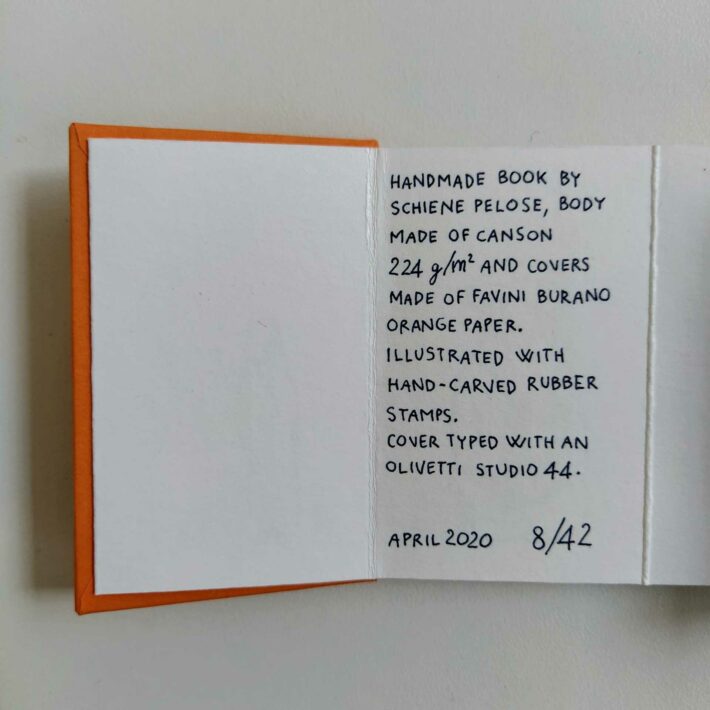 HANDMADE BOOK BY
SCHIENE PELOSE, BODY
MADE OF CANSON
224 g/m² AND COVERS
MADE OF FAVINI BURANO
ORANGE PAPER.
ILLUSTRATED WITH
HAND-CARVED RUBBER
STAMPS.
COVER TYPED WITH AN
OLIVETTI STUDIO 44.
APRIL 2020 8/42